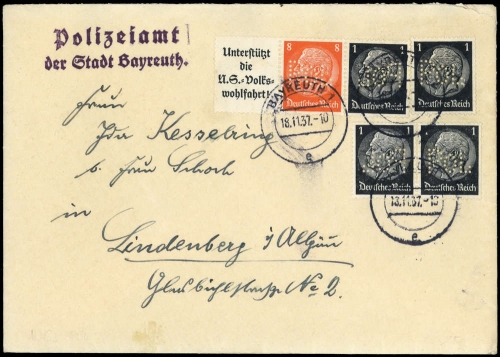 Polizeiamt
der Stadt Bayreuth.
Unterstützt
die
N.S.-Volks-
wohlfahrt!
8 8
Deutsches Reich
1 1
Deutsches Reich
1 1
Deutsches Reich
1 1
Deutsches Reich
1 1
Deutsches Reich
BAYREUTH 1
18.11.37.-10
e
18.11.37.-10
e
Frau
Ida Kesselring
b. Frau Schoch
in
Lindenberg i/Allgäu
No 2.